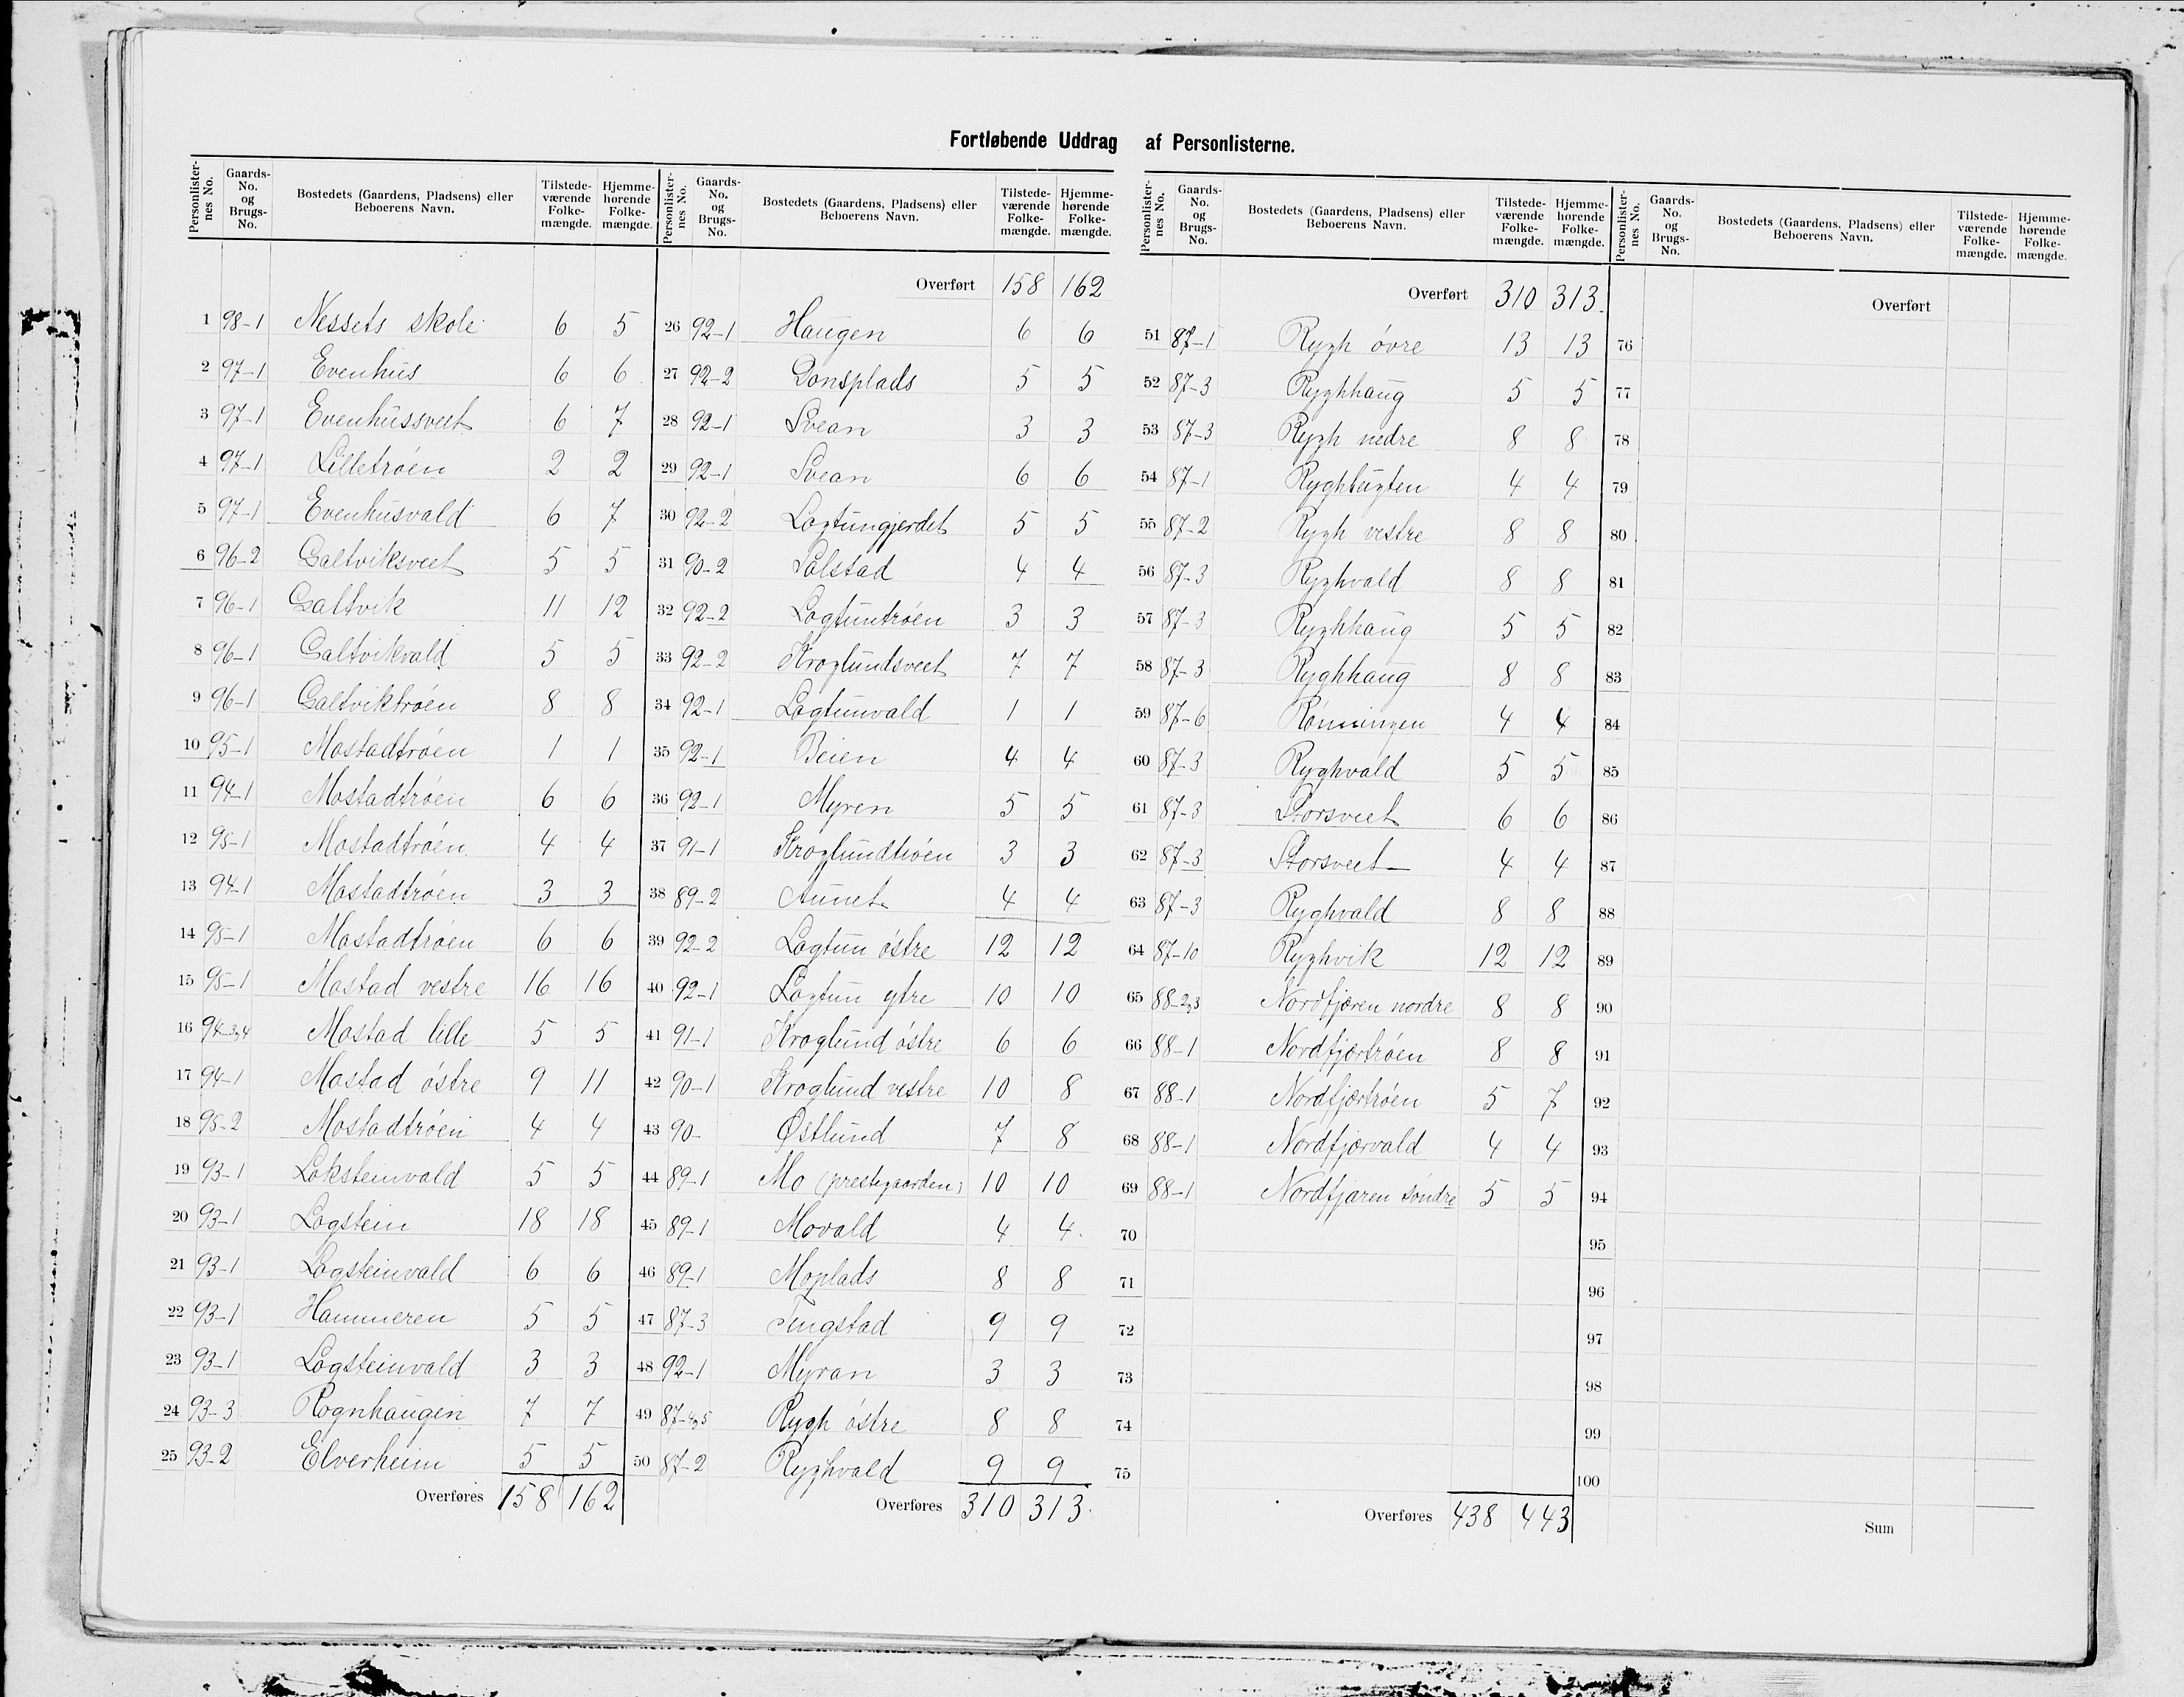 Fortløbende Uddrag af Personlisterne.
Personlisternes No. Gaards-No. og Brugs-No. Bostedets (Gaardens, Pladsens) eller Beboerens Navn. Tilstedeværende Folkemængde. Hjemmehørende Folkemængde.
1 98-1 Nessets skole 6 5
2 97-1 Evenhus 6 6
3 97-1 Evenhussveet 6 7
4 97-1 Lilletrøen 2 2
5 97-1 Evenhusvald 6 7
6 96-2 Galtviksveet 5 5
7 96-1 Galtvik 11 12
8 96-1 Galtvikvald 5 5
9 96-1 Galtviktrøen 8 8
10 95-1 Mostadtrøen 1 1
11 94-1 Mostadtrøen 6 6
12 95-1 Mostadtrøen 4 4
13 94-1 Mostadtrøen 3 3
14 95-1 Mostadtrøen 6 6
15 95-1 Mostad vestre 16 16
16 94-3,4 Mostad lille 5 5
17 94-1 Mostad østre 9 11
18 95-2 Mostadtrøen 4 4
19 93-1 Loksteinvald 5 5
20 93-1 Logstein 18 18
21 93-1 Logsteinvald 6 6
22 93-1 Hammeren 5 5
23 93-1 Logsteinvald 3 3
24 93-3 Rognhaugen 7 7
25 93-2 Elverheim 5 5
Overføres 158 162
Personlisternes No. Gaards-No. og Brugs-No. Bostedets (Gaardens, Pladsens) eller Beboerens Navn. Tilstedeværende Folkemængde. Hjemmehørende Folkemængde.
Overført 158 162
26 92-1 Haugen 6 6
27 92-2 Donsplads 5 5
28 92-1 Svean 3 3
29 92-1 Svean 6 6
30 92-2 Logtungjerdet 5 5
31 90-2 Salstad 4 4
32 92-2 Logtuntrøen 3 3
33 92-2 Kroglundsveet 7 7
34 92-1 Logtunvald 1 1
35 92-1 Beien 4 4
36 92-1 Myren 5 5
37 91-1 Kroglundtrøen 3 3
38 89-2 Aunet 4 4
39 92-2 Logtun østre 12 12
40 92-1 Logtun ytre 10 10
41 91-1 Kroglund østre 6 6
42 90-1 Kroglund vestre 10 8
43 90- Østlund 7 8
44 89-1 Mo (prestegaarden) 10 10
45 89-1 Movald 4 4
46 89-1 Moplads 8 8
47 87-3 Tingstad 9 9
48 92-1 Myran 3 3
49 87-4,5 Rygh østre 8 8
50 87-2 Ryghvald 9 9
Overføres 310 313
Personlisternes No. Gaards-No. og Brugs-No. Bostedets (Gaardens, Pladsens) eller Beboerens Navn. Tilstedeværende Folkemængde. Hjemmehørende Folkemængde.
Overført 310 313
51 87-1 Rygh øvre 13 13
52 87-3 Ryghhaug 5 5
53 87-3 Rygh nedre 8 8
54 87-1 Ryghbugten 4 4
55 87-2 Rygh vestre 8 8
56 87-3 Ryghvald 8 8
57 87-3 Ryghhaug 5 5
58 87-3 Ryghhaug 8 8
59 87-6 Rønningen 4 4
60 87-3 Ryghvald 5 5
61 87-3 Storsveet 6 6
62 87-3 Storsveet 4 4
63 87-3 Ryghvald 8 8
64 87-10 Ryghvik 12 12
65 88-2,3 Nordfjæren nordre 8 8
66 88-1 Nordfjærtrøen 8 8
67 88-1 Nordfjærtrøen 5 7
68 88-1 Nordfjærvald 4 4
69 88-1 Nordfjæren søndre 5 5
70
71
72
73
74
75
Overføres 438 443
Personlisternes No. Gaards-No. og Brugs-No. Bostedets (Gaardens, Pladsens) eller Beboerens Navn. Tilstedeværende Folkemængde. Hjemmehørende Folkemængde.
Overført
76
77
78
79
80
81
82
83
84
85
86
87
88
89
90
91
92
93
94
95
96
97
98
99
100
Sum